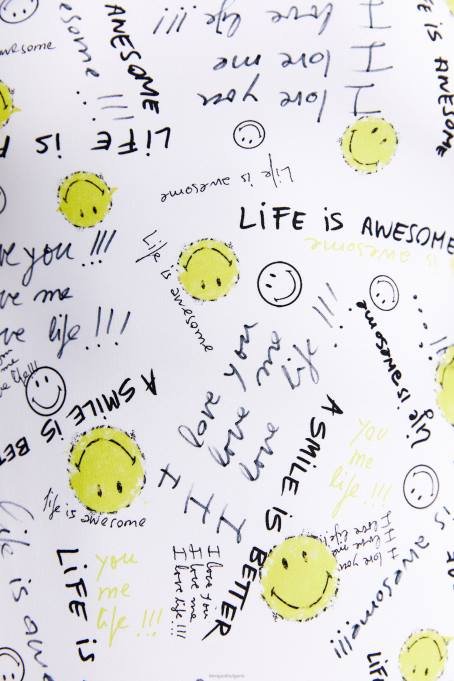 AWESOME
I love life !!!
I love me
I love you
awesome
esome !!!...
LiFE iS
E iS AWESOME
Life is awesome
LiFE iS AWESOME
s awesome
ve you !!!
ve me
ve life !!!
Life is awesome
Life is awesome
A SMiLE iS BE
I love you
I love me
I love life !!!...
A SMiLE iS BETTER
you
me
life !!!
life is awesome
I love you
I love me
I love life !!!
I love you
I love me
I love life !!!
LiFE iS
you
me
life !!!
life is awe
is awesome!!!
LiF